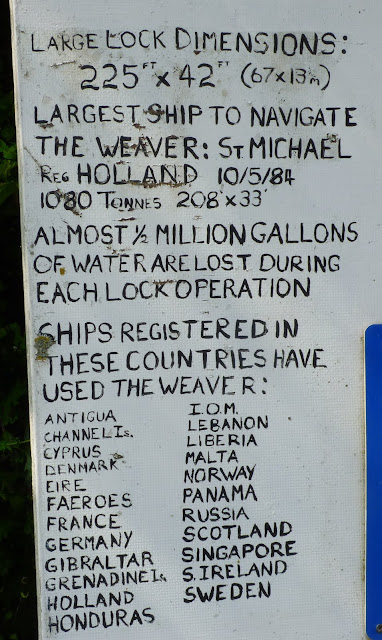 LARGE LOCK DIMENSIONS:
225FT x 42FT (67x13m)
LARGEST SHIP TO NAVIGATE
THE WEAVER: ST MICHAEL
REG HOLLAND 10/5/84
1080 TONNES 208'x33'
ALMOST ½ MILLION GALLONS
OF WATER ARE LOST DURING
EACH LOCK OPERATION
SHIPS REGISTERED IN
THESE COUNTRIES HAVE
USED THE WEAVER:
ANTIGUA
CHANNEL Is.
CYPRUS
DENMARK
EIRE
FAEROES
FRANCE
GERMANY
GIBRALTAR
GRENADINE Is
HOLLAND
HONDURAS
I.O.M.
LEBANON
LIBERIA
MALTA
NORWAY
PANAMA
RUSSIA
SCOTLAND
SINGAPORE
S.IRELAND
SWEDEN